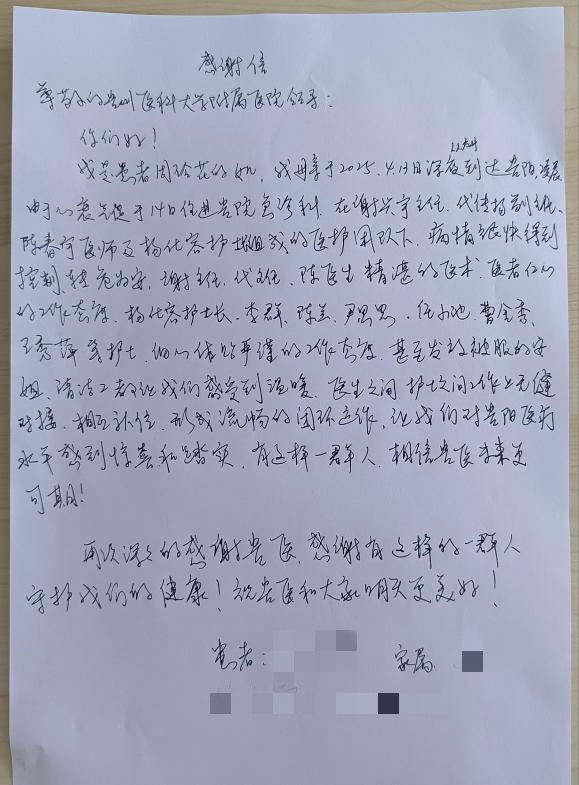 感谢信
尊敬的贵州医科大学附属医院领导：
你们好！
我是患者周玲花的女儿，我母亲于2025.4.13日深夜12点到达贵阳，凌晨
由于心衰于14日住进贵院急诊科，在谢兴宇主任、代传扬副主任、
陈春宇医师及杨仕容护士长组成的医护团队下，病情很快得到
控制，转危为安，谢主任、代主任、陈医生精湛的医术，医者仁心
的工作态度，杨仕容护士长、李群、陈美、尹思思、任小池、曹金香、
王秀萍等护士，细心体贴严谨的工作态度，甚至发放被服的安
姐，清洁工都让我们感受到温暖，医生之间，护士之间工作上无缝
对接，相互补位，形成流畅的闭环运作，让我们对贵阳医疗
水平感到惊喜和踏实，有这样一群人，相信贵医未来更
可期！
再次深深的感谢贵医，感谢有这样的一群人
守护我们的健康！祝贵医和大家明天更美好！
患者： 家属